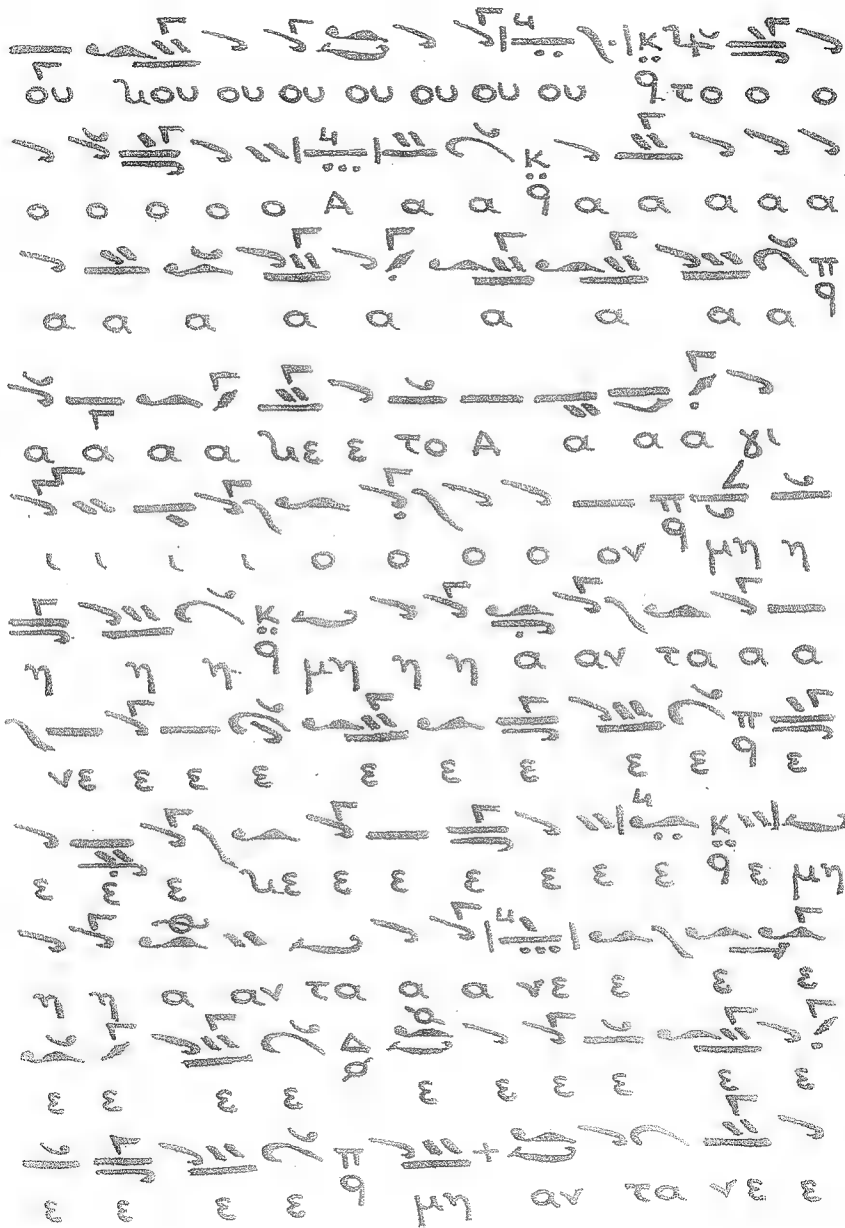 ου χου ου ου ου ου ου ου το ο ο
ο ο ο ο ο Α α α α α α α α
α α α α α α α α α
α α α α χε ε το Α α α α γι
ι ι ι ι ο ο ο ο ον μη η
η η η μη η η α αν τα α α
νε ε ε ε ε ε ε ε ε ε
ε ε ε χε ε ε ε ε ε ε ε μη
η η α αν τα α α νε ε ε ε
ε ε ε ε ε ε ε ε ε ε
ε ε ε ε μη αν τα νε ε ε